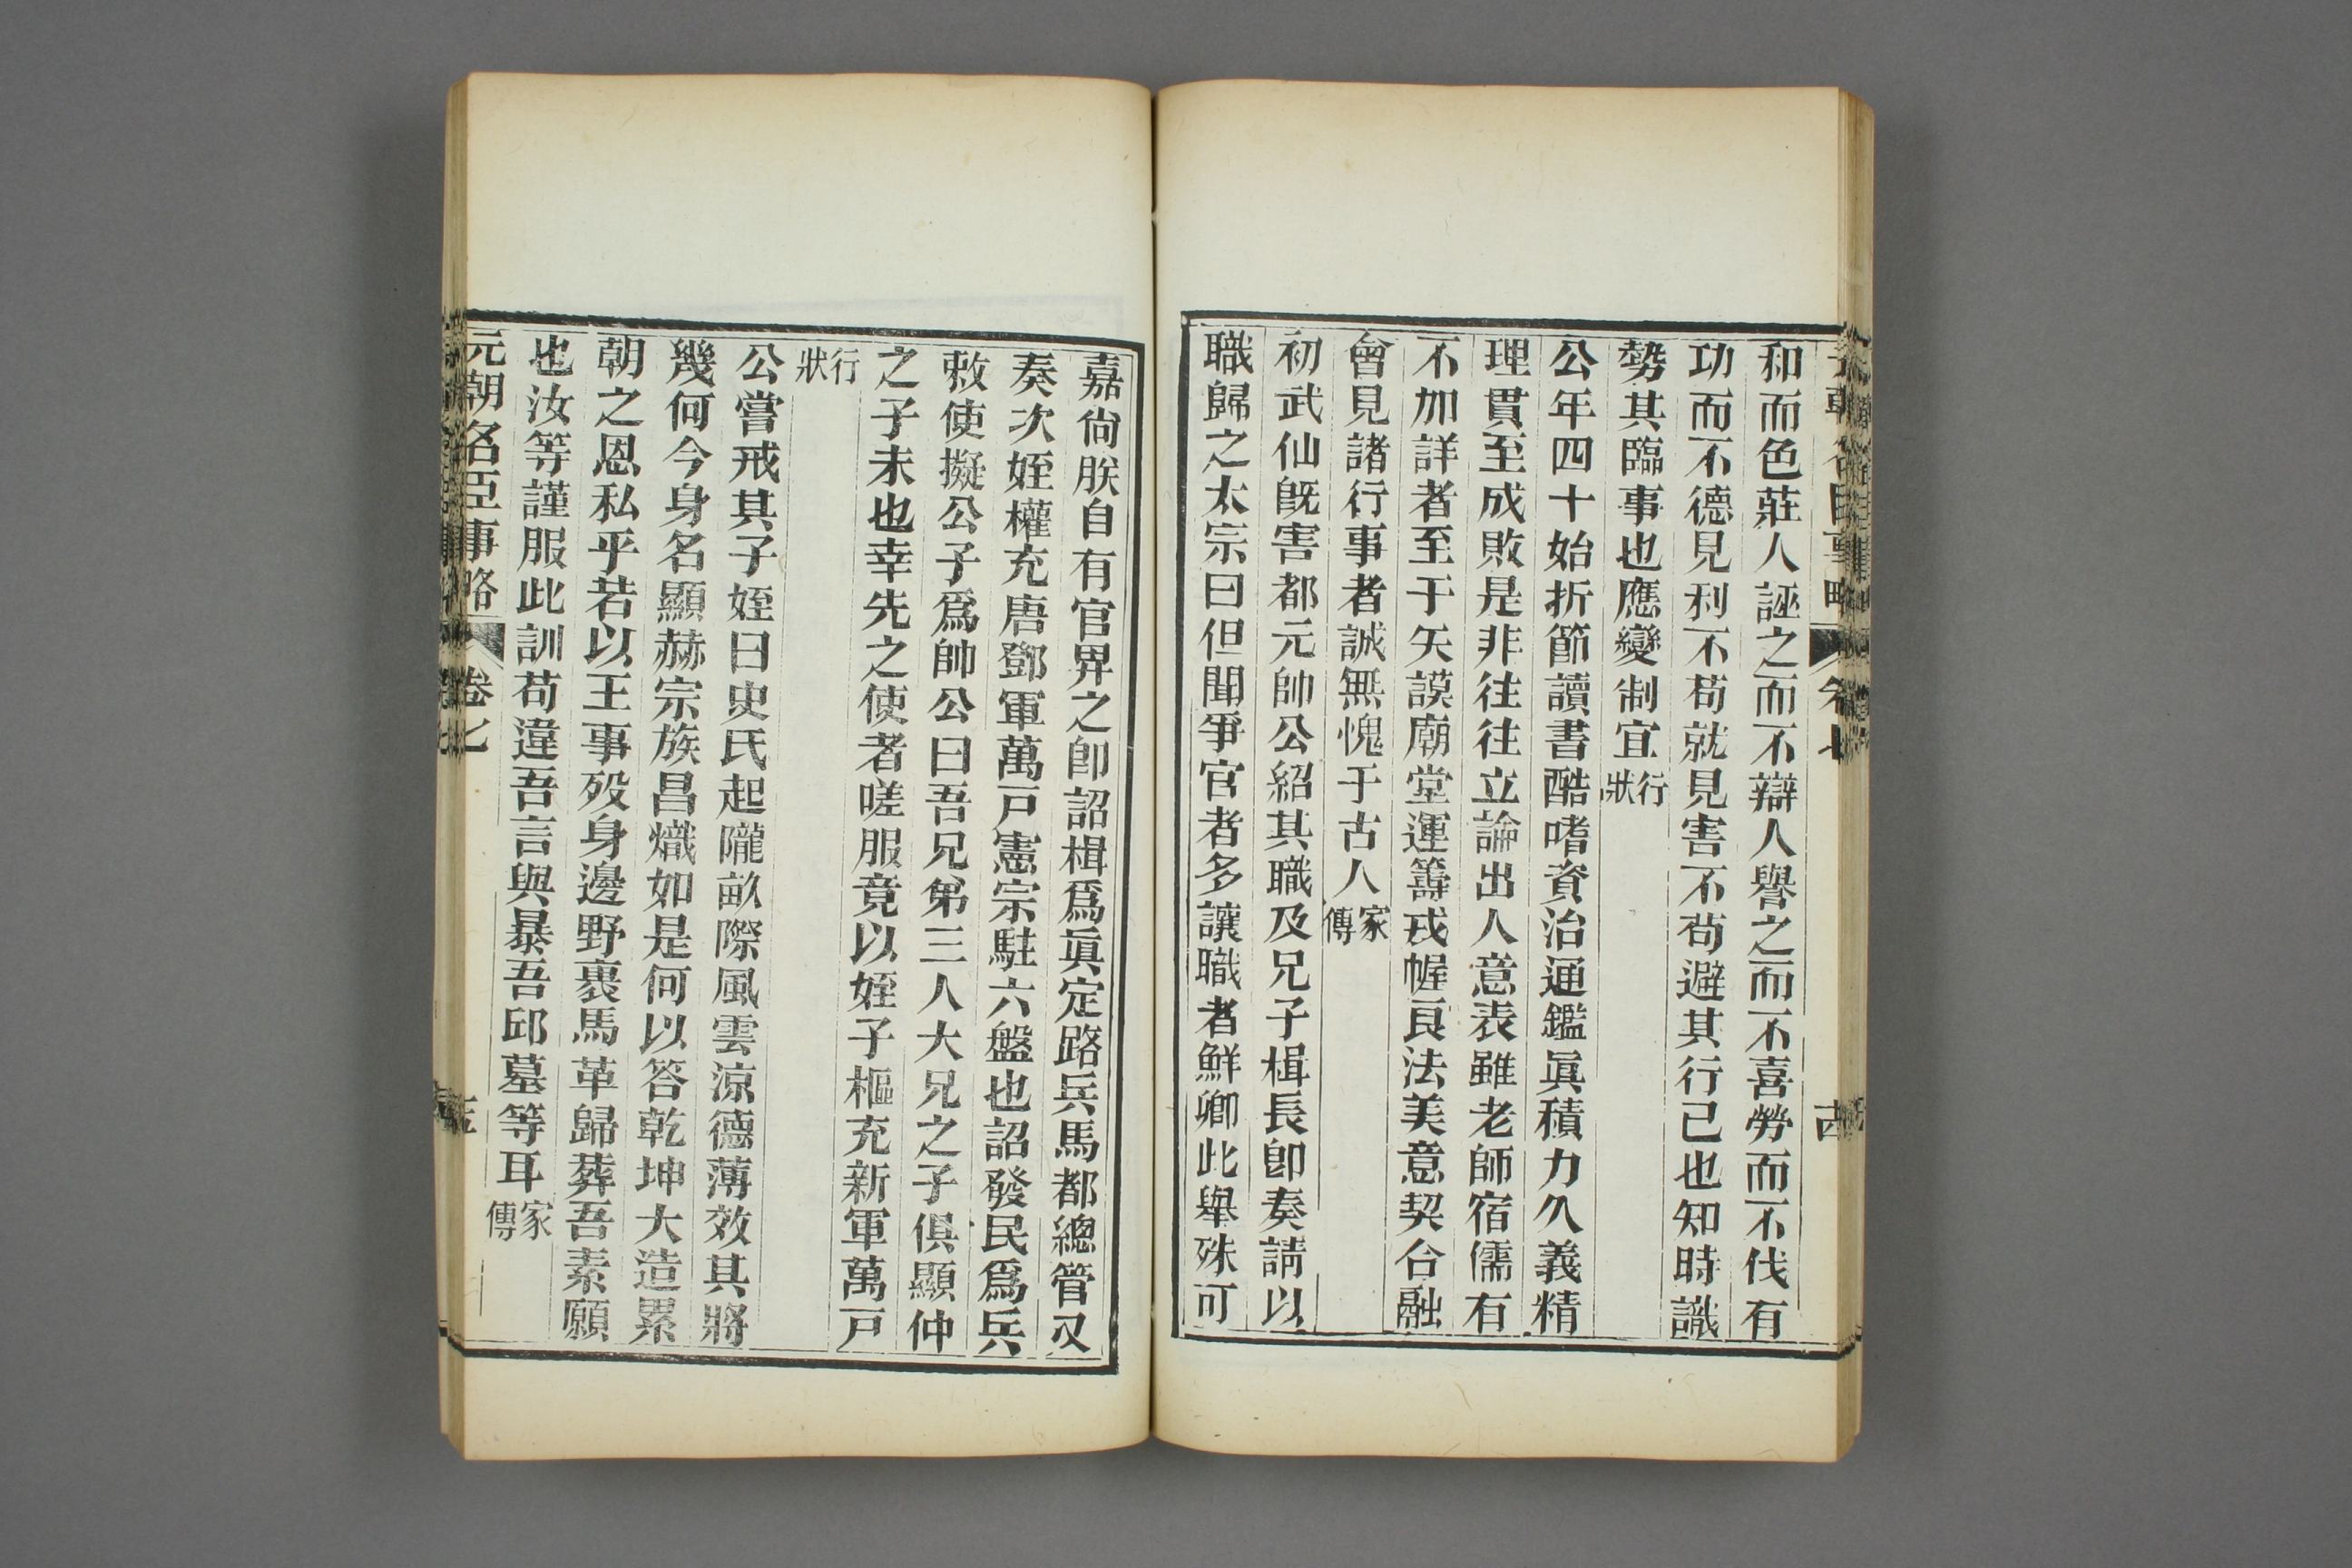 和而色莊人誣之而不辯人譽之而不喜勞而不伐有
功而不德見利不苟就見害不苟避其行已也知時識
勢其臨事也應變制宜行狀
公年四十始折節讀書酷嗜資治通鑑眞積力久義精
理貫至成敗是非往往立論出人意表雖老師宿儒有
不加詳者至于矢謨廟堂運籌戎幄良法美意契合融
會見諸行事者誠無愧于古人家傳
初武仙旣害都元帥公紹其職及兄子楫長卽奏請以
職歸之太宗曰但聞爭官者多讓職者鮮卿此舉殊可
嘉尙朕自有官畀之卽詔楫爲眞定路兵馬都總管又
奏次姪權充唐鄧軍萬戸憲宗駐六盤也詔發民爲兵
敕使擬公子爲帥公曰吾兄弟三人大兄之子俱顯仲
之子未也幸先之使者嗟服竟以姪子樞充新軍萬戸
行狀
公嘗戒其子姪曰史氏起隴畝際風雲涼德薄效其將
幾何今身名顯赫宗族昌熾如是何以答乾坤大造累
朝之恩私乎若以王事歿身邊野裹馬革歸葬吾素願
也汝等謹服此訓苟違吾言與暴吾邱墓等耳家傳
元朝名臣事略 卷七